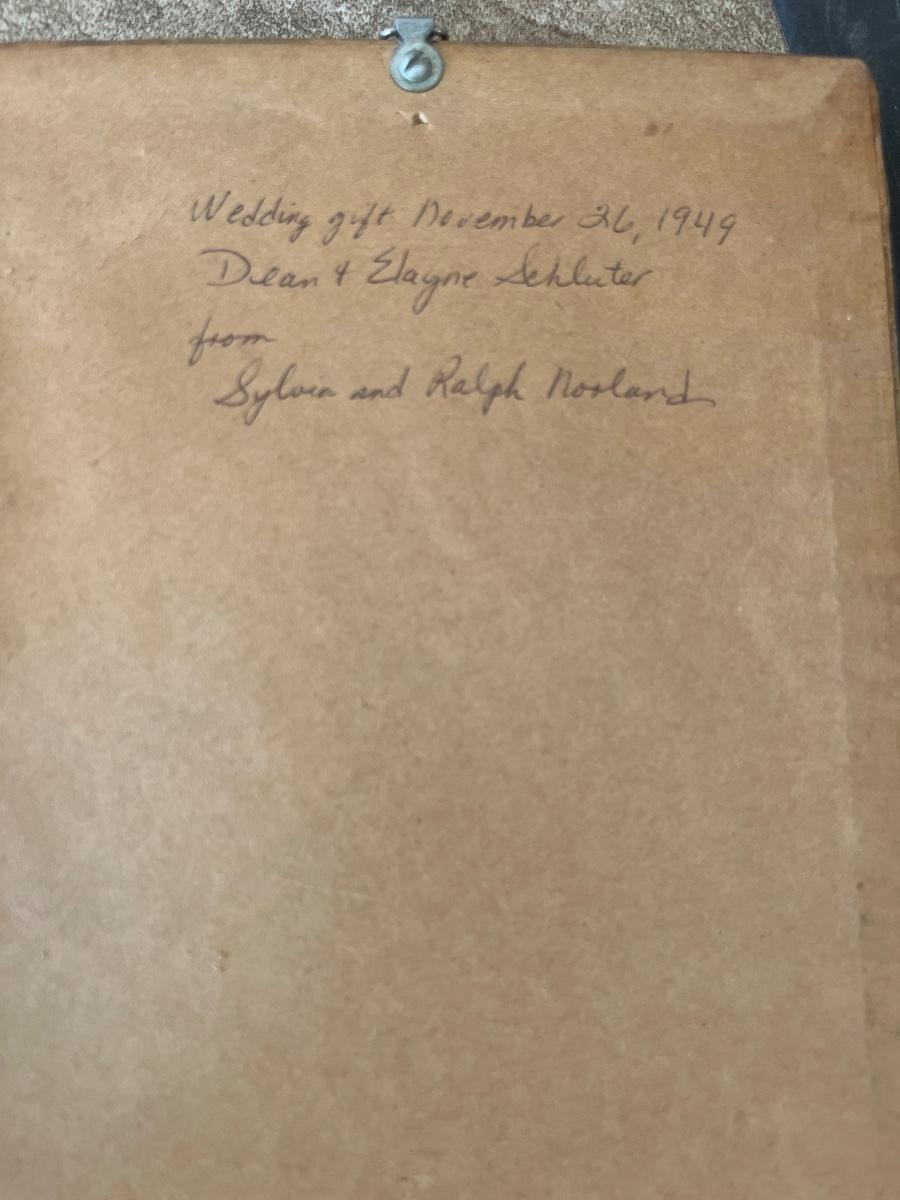 Wedding gift November 26, 1949
Dean & Elayne Schluter
from
Sylvia and Ralph Norland